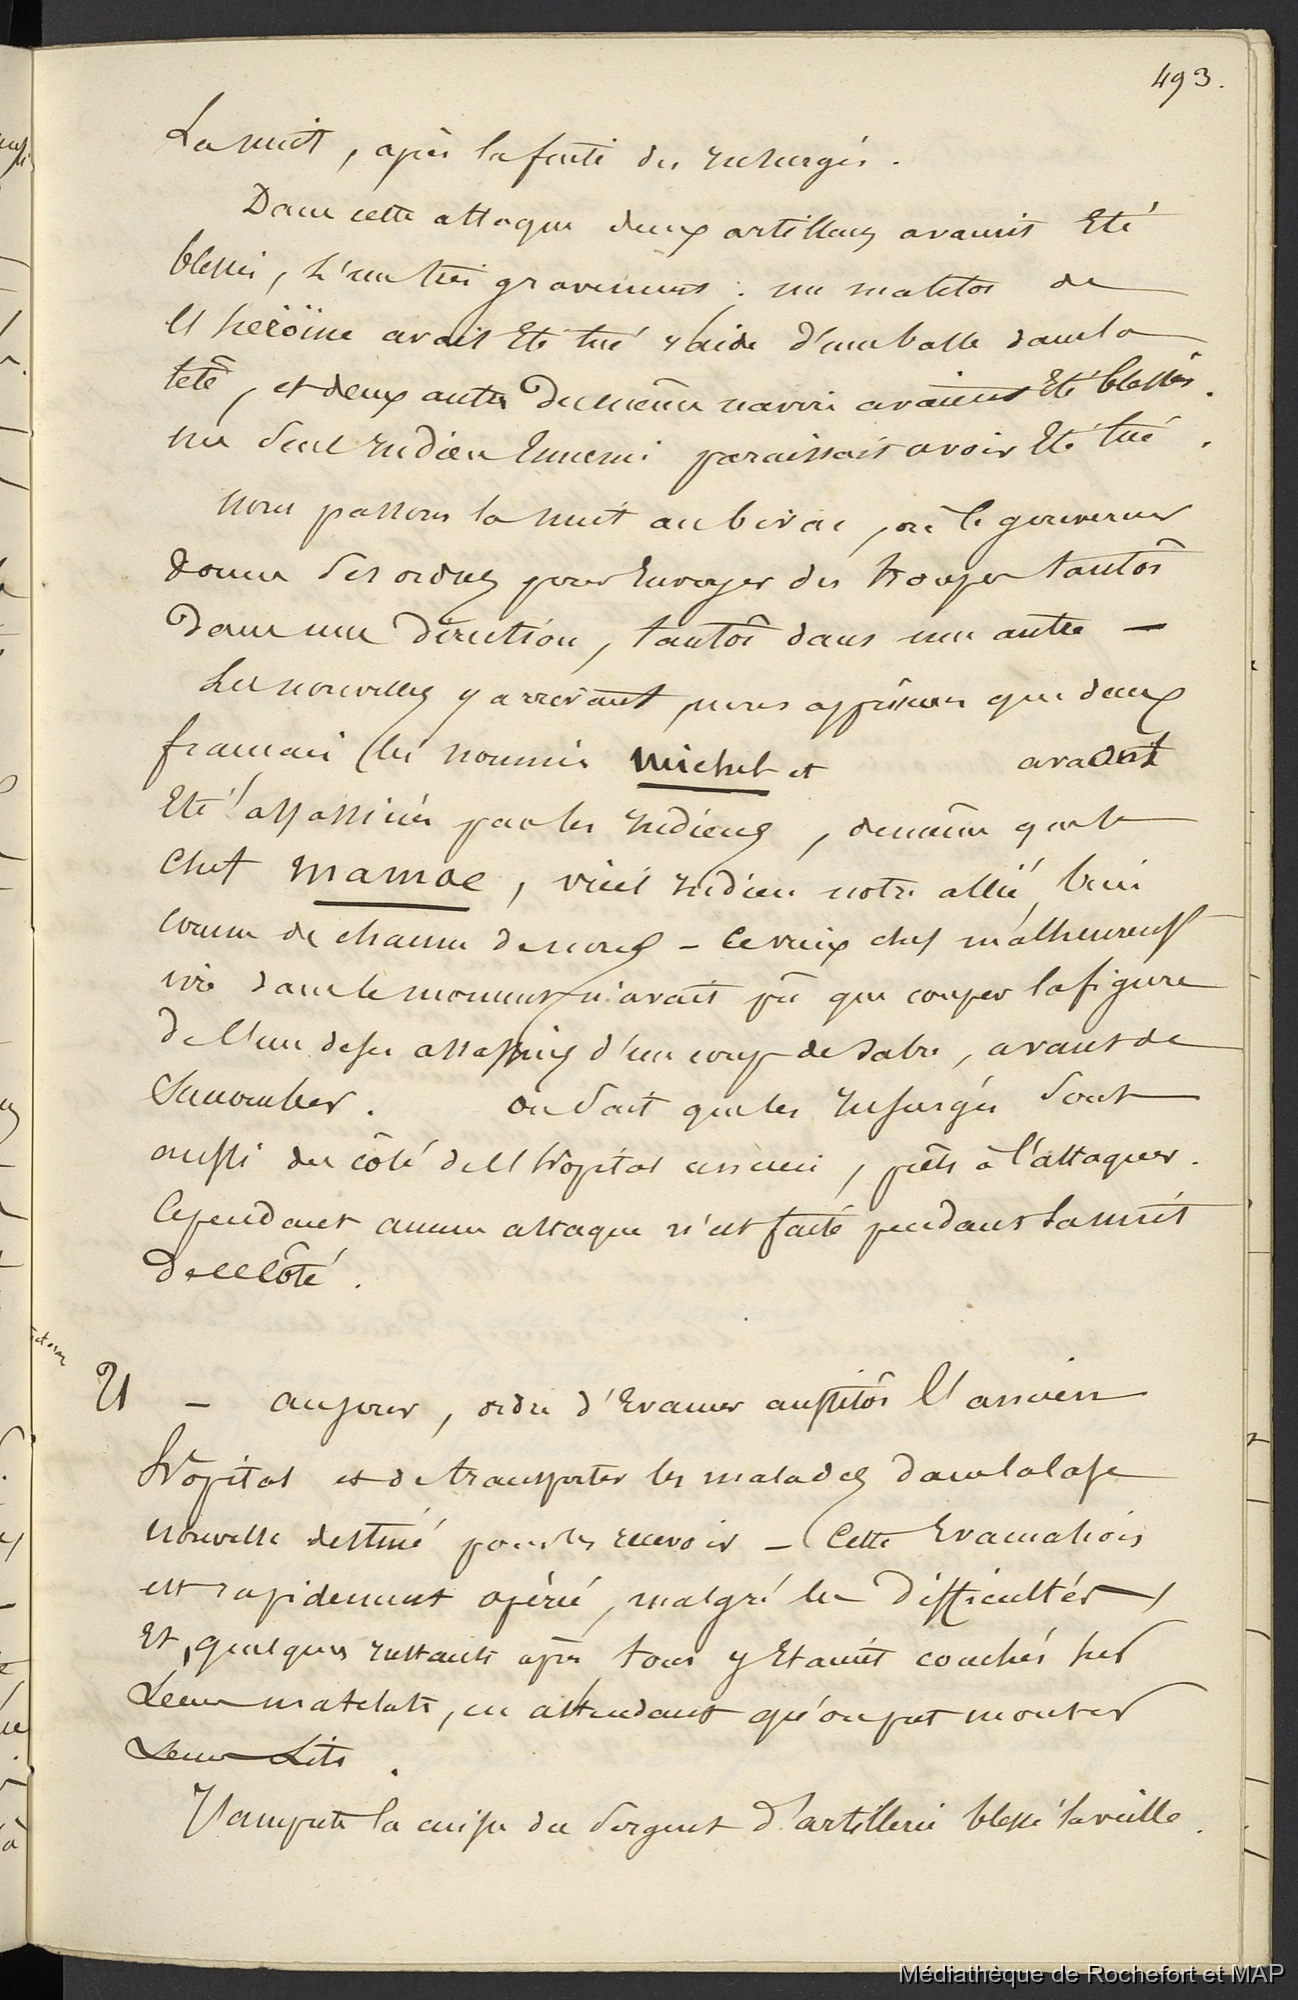 493.
La nuit, après la fuite des Insurgés.
Dans cette attaque deux artilleurs avaient Eté
blessés, L'un très gravement : un matelot de
l'héroïne avait Eté tué raide d'une balle dans la
tetê, et deux autres du même navire avaient Eté blessés.
un seul Indien Ennemi paraissait avoir Eté tué.
nous passons la nuit au bivac, où le gouverneur
donne des ordres pour Envoyer des troupes tantôt
dans une direction, tantôt dans une autre —
Les nouvelles y arrivant, nous apprîmes que deux
francais (les nommés michel et avaient
Eté assassinés par les Indiens, de même que le
chef mamoe, vieil Indien notre allié, bien
connu de chacun de nous - Ce vieux chef malheureust
ivre dans le moment n'avait pû que couper la figure
de l'un de ses assassins d'un coup de sabre, avant de
succomber. on sait que les Insurgés sont
aussi du côté de l'hôpital ancien, prêts à l'attaquer.
Cependant aucune attaque n'est faite pendant la nuit
de ce côté.
21 - au jour, ordre d'Evacuer aussitôt l'ancien
hôpital et de transporter les malades dans la case
nouvelle destiné pour les recevoir - Cette Evacuation
est rapidement opérée, malgré les difficultés,
Et, quelques Instants après tous y Etaient couchés sur
Leurs matelats, en attendant qu'on put monter
Leurs Lits.
J'ampute la cuisse du Sergent d'artillerie blessé la veille.
Médiathèque de Rochefort et MAP